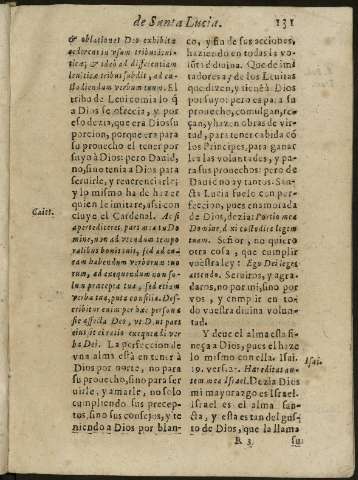 de Santa Lucia. 131
& oblationes Deo exhibitæ
cederent in vsum tribus leui-
ticæ; & ideò ad differentiam
leuiticæ tribus subdit, ad cu-
stodiendum verbum tuum. El
tribu de Leui comia lo q̃
a Dios se ofrecia, y por
eso dezia, que era Dios su
porcion, porque era para
su prouecho el tener por
suyo à Dios: pero Dauid,
no, sino tenia a Dios para
seruirle, y reuerenciarle;
y lo mismo ha de hazer
quien le imitare, assi con
cluye el Cardenal. Ac si
Caiet.
apertè diceret. pars mea tu Do
mine, non ad vtendum tempo
ralibus bonis tuis, sed ad cu-
ram habendum verborum tuo
rum, ad exequendum non so-
lum præcepta tua, sed etiam
verba tua, puta consilia. Des-
cribitur enim per hæc persona
sic affecta Deo, vt
eius, sit
ba Dei. La perfeccion de
vna alma està en tener à
Dios por norte, no para
su prouecho, sino para ser
uirle, y amarle, no solo
cumpliendo sus precep-
tos, sino sus consejos, y te
niendo a Dios por blan-
co, y fin de sus acciones,
haziendo en todas la vo-
lũtad diuina. Que de imi
tadores ay de los Leuitas
que dizen, y tienẽ à Dios
por suyo: pero es para su
prouecho, comulgan, re-
çan, y hazen obras de vir-
tud, para tener cabida cõ
los Principes, para ganar
les las voluntades, y pa-
ra sus prouechos: pero de
Dauid no ay tantos. San-
cta Lucia fuelo con per-
feccion, pues enamorada
de Dios, dezia: Portio mea
Domine, dixi custodire legem
tuam. Señor, no quiero
otra cosa, que cumplir
vuestra ley: Ego Dei legem
attendo. Seruiros, y agra-
daros, no por mi, sino por
vos, y cumplir en to-
do vuestra diuina volun-
tad.
Y deue el alma esta fi-
neça a Dios, pues el haze
lo mismo con ella. Isai.
Isai.
19. vers. 25. Hæreditas au-
tem mea Israel. Dezia Dios
mi mayorazgo es Israel.
Israel es el alma san-
cta, y esta es tan del gus-
to de Dios, que la llama
R 3. su